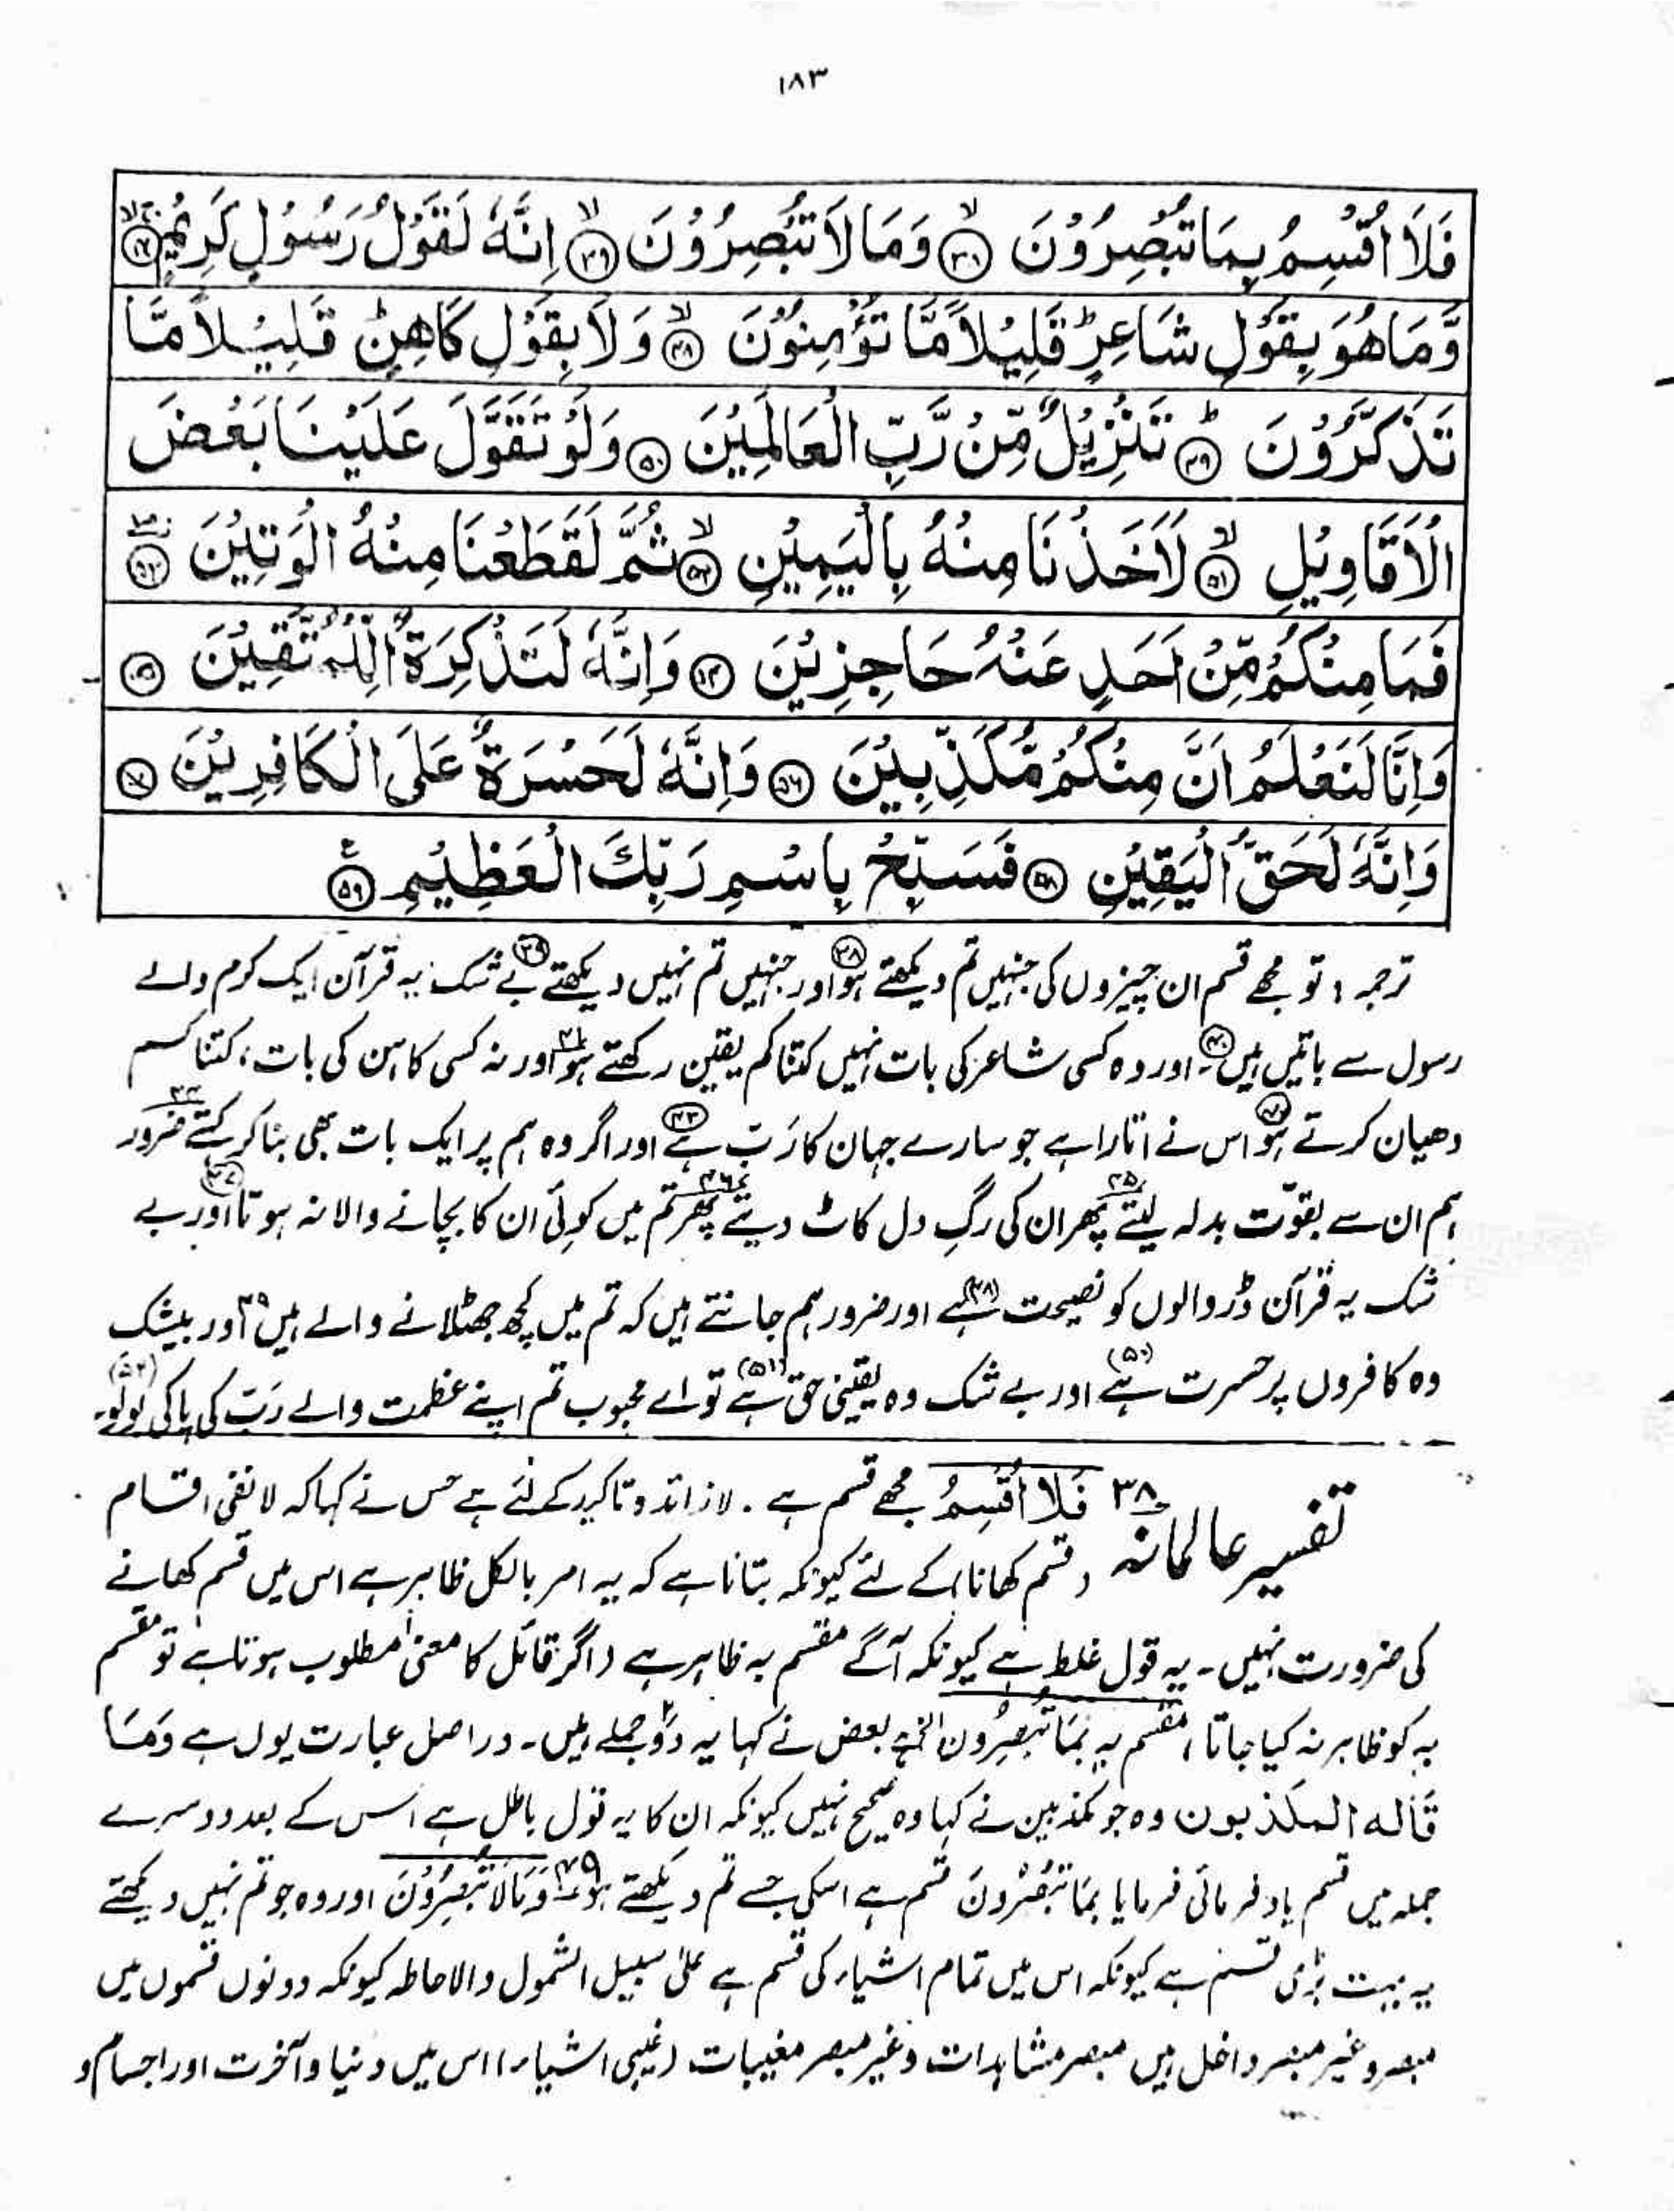 ۱۸۳
فَلَاۤ اُقْسِمُ بِمَا تُبْصِرُوْنَ ۙ﴿۳۸﴾ وَمَا لَا تُبْصِرُوْنَ ۙ﴿۳۹﴾ اِنَّهٗ لَقَوْلُ رَسُوْلٍ كَرِيْمٍ
وَّمَا هُوَ بِقَوْلِ شَاعِرٍ ؕ قَلِيْلًا مَّا تُؤْمِنُوْنَ ۙ﴿۴۸﴾ وَلَا بِقَوْلِ كَاهِنٍ ؕ قَلِيْلًا مَّا
تَذَكَّرُوْنَ ؕ﴿۴۹﴾ تَنْزِيْلٌ مِّنْ رَّبِّ الْعَالَمِيْنَ ﴿۵۰﴾ وَلَوْ تَقَوَّلَ عَلَيْنَا بَعْضَ
الْاَقَاوِيْلِ ۙ﴿۵۱﴾ لَاَخَذْنَا مِنْهُ بِالْيَمِيْنِ ۙ﴿۵۲﴾ ثُمَّ لَقَطَعْنَا مِنْهُ الْوَتِيْنَ ﴿۵۳﴾
فَمَا مِنْكُمْ مِّنْ اَحَدٍ عَنْهُ حَاجِزِيْنَ ﴿۵۴﴾ وَاِنَّهٗ لَتَذْكِرَةٌ لِّلْمُتَّقِيْنَ
وَاِنَّا لَنَعْلَمُ اَنَّ مِنْكُمْ مُّكَذِّبِيْنَ ﴿۵۶﴾ وَاِنَّهٗ لَحَسْرَةٌ عَلَى الْكَافِرِيْنَ
وَاِنَّهٗ لَحَقُّ الْيَقِيْنِ ﴿۵۸﴾ فَسَبِّحْ بِاسْمِ رَبِّكَ الْعَظِيْمِ ﴿۵۹﴾ ع
ترجمہ : تو مجھے قسم ان چیزوں کی جنہیں تم دیکھتے ہو ﴿۳۸﴾ اور جنہیں تم نہیں دیکھتے ﴿۳۹﴾ بے شک یہ قرآن ایک کرم والے
رسول سے باتیں ہیں ﴿۴۰﴾ اور وہ کسی شاعر کی بات نہیں کتنا کم یقین رکھتے ہو ۴۱ اور نہ کسی کاہن کی بات، کتنا کم
دھیان کرتے ہو ﴿۴۲﴾ اس نے اتارا ہے جو سارے جہان کا رَبّ ہے ﴿۴۳﴾ اور اگر وہ ہم پر ایک بات بھی بنا کر کہتے ۴۴ ضرور
ہم ان سے بقوّت بدلہ لیتے ۴۵ پھر ان کی رگِ دل کاٹ دیتے ۴۶ پھر تم میں کوئی ان کا بچانے والا نہ ہوتا ﴿۴۷﴾ اور بے
شک یہ قرآن ڈر والوں کو نصیحت ہے (۴۸) اور ضرور ہم جانتے ہیں کہ تم میں کچھ جھٹلانے والے ہیں ۴۹ اور بیشک
وہ کافروں پر حسرت ہے (۵۰) اور بے شک وہ یقینی حق ہے (۵۱) تو اے محبوب تم اپنے عظمت والے رَبّ کی پاکی بولو (۵۲)
تفسیر عالمانہ ۳۸ فَلَا اُقْسِمُ مجھے قسم ہے۔ لا زائدہ و تاکید کے لئے ہے جس نے کہا کہ لا نفی اقسام
(قسم کھانا) کے لئے کیونکہ بتانا ہے کہ یہ امر بالکل ظاہر ہے اس میں قسم کھانے
کی ضرورت نہیں۔ یہ قول غلط ہے کیونکہ آگے مقسم بہ ظاہر ہے (اگر قائل کا معنیٰ مطلوب ہوتا ہے تو مقسم
بہ کو ظاہر نہ کیا جاتا، مقسم بہ بِمَا تُبْصِرُون الخ ہے بعض نے کہا یہ دو جملے ہیں۔ دراصل عبارت یوں ہے وَمَا
قَالَه المکذبون وہ جو مکذبین نے کہا وہ صحیح نہیں کیونکہ ان کا یہ قول باطل ہے اس کے بعد دوسرے
جملہ میں قسم یاد فرمائی فرمایا بِمَا تُبْصِرُونَ قسم ہے اسکی جسے تم دیکھتے ہو ۳۹ وَمَا لَا تُبْصِرُوْنَ اور وہ جو تم نہیں دیکھتے
یہ بہت بڑی قسم ہے کیونکہ اس میں تمام اشیاء کی قسم ہے علیٰ سبیل الشمول والاحاطہ کیونکہ دونوں قسموں میں
مبصر و غیر مبصر داخل ہیں مبصر مشاہدات و غیر مبصر مغیبات (غیبی اشیاء) اس میں دنیا و آخرت اور اجسام و